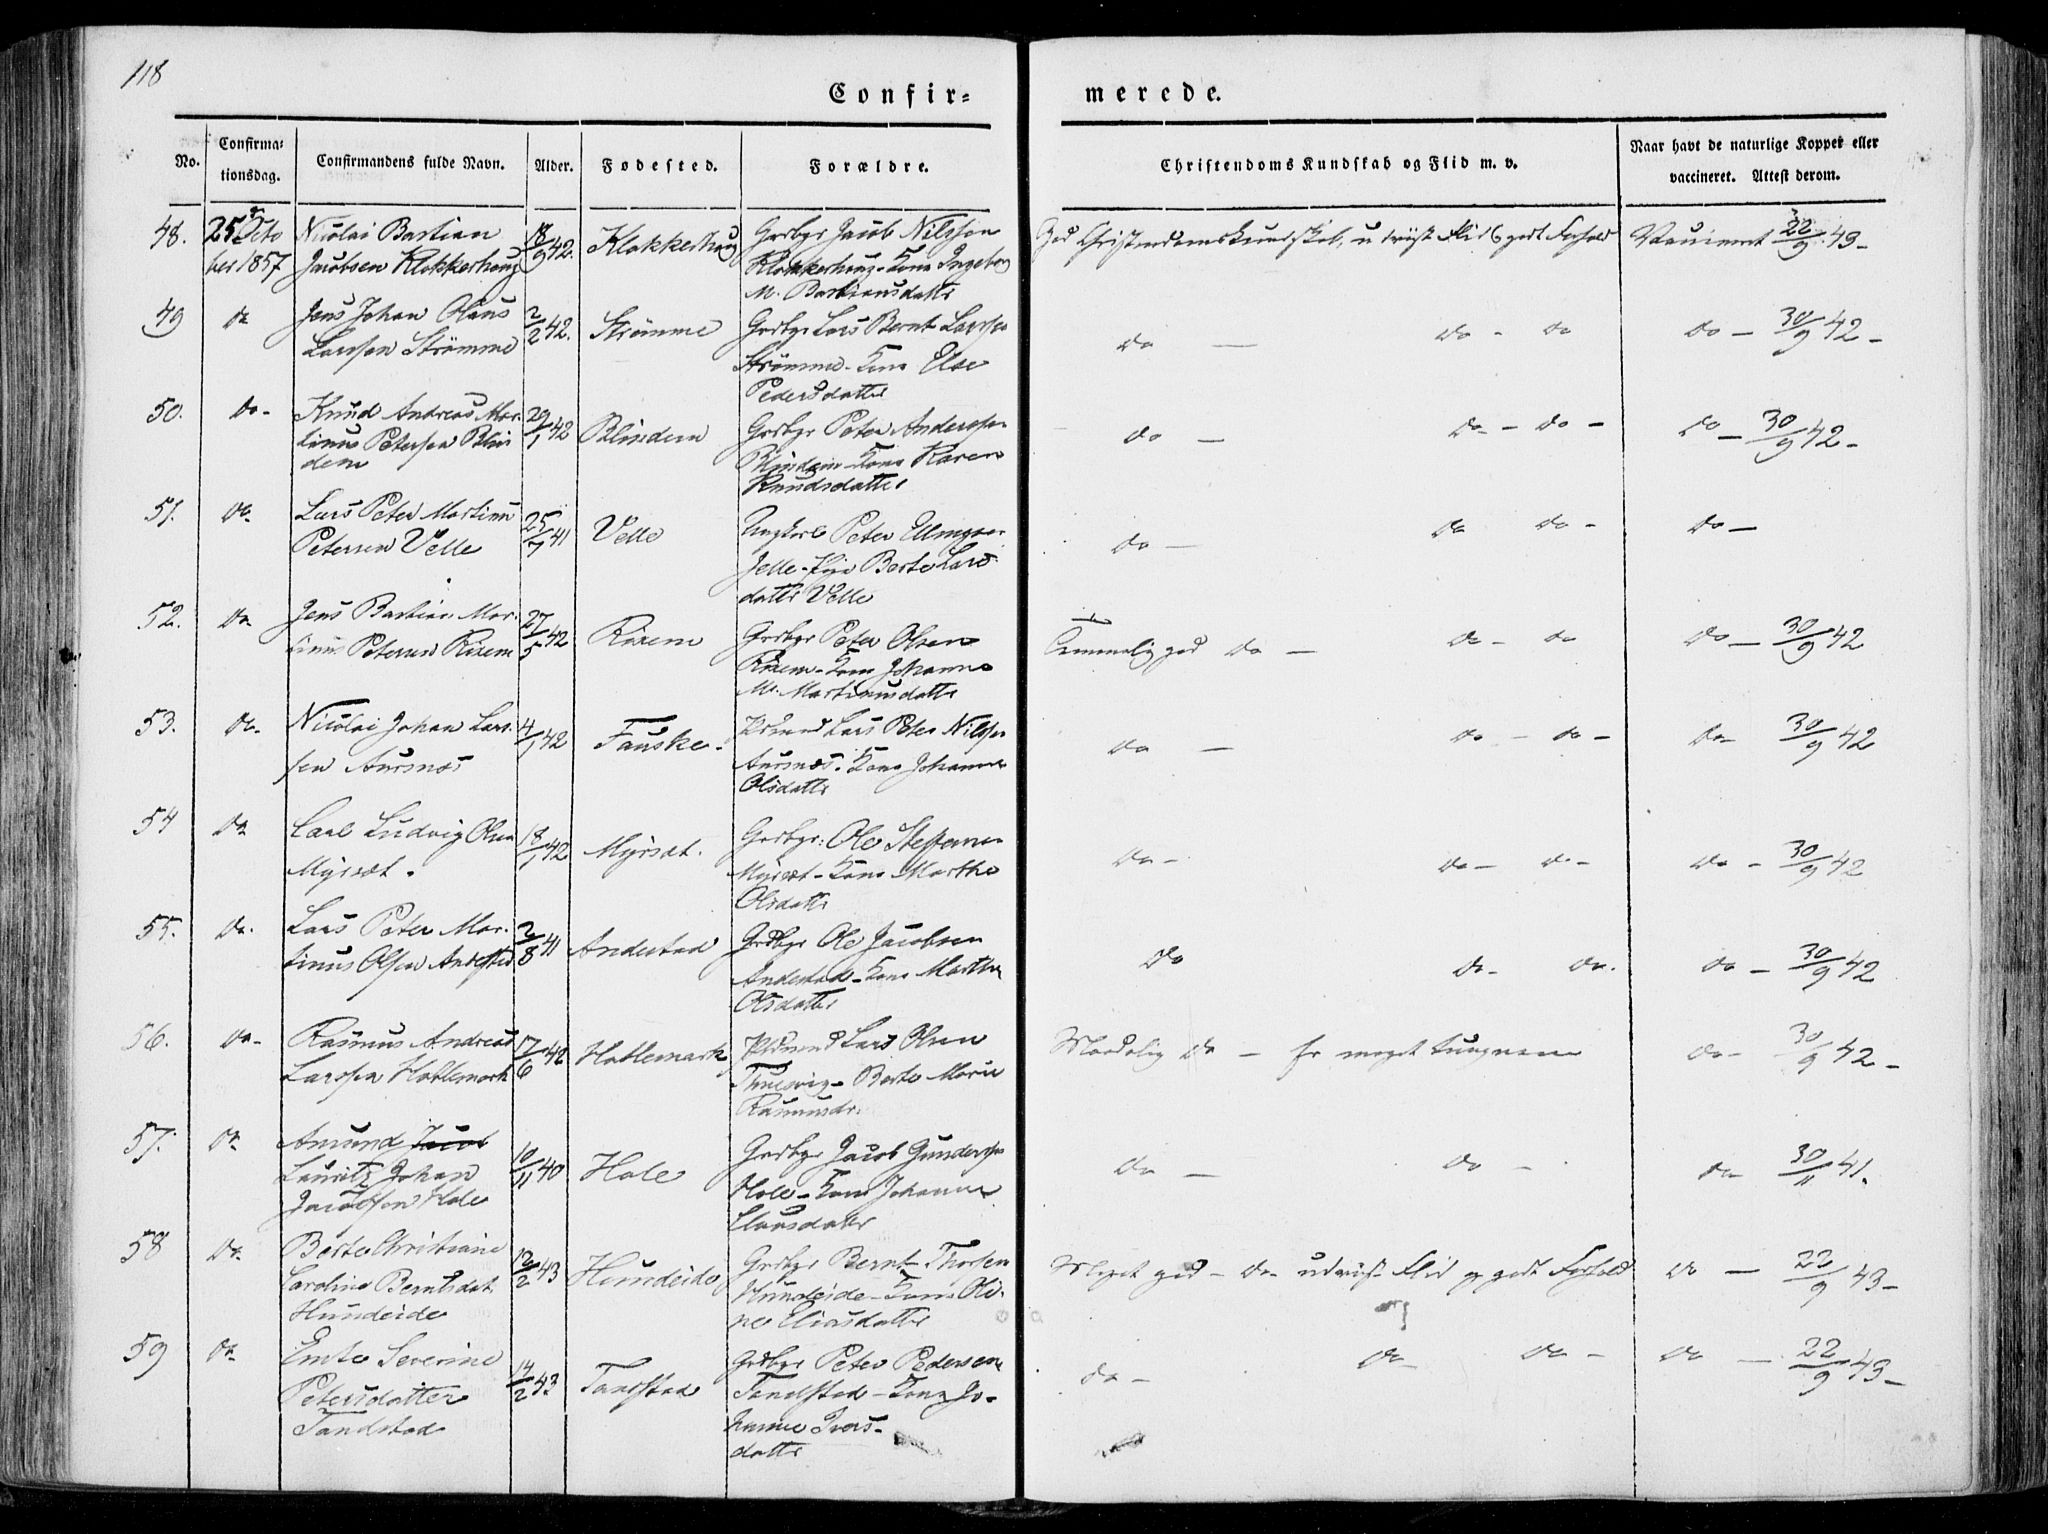 118
Confir=
merede.
No.
Confirma=
tionsdag.
Confirmandens fulde Navn.
Alder.
Fødested.
Forældre.
Christendoms Kundskab og Flid m. v.
Naar havt de naturlige Kopper eller
vaccineret. Attest derom.
48.
25 Octo
ber 1857
Nicolai Bastian
Jacobsen Klokkerhoug
18/9 42.
Klokkerhoug
Grdbgr Jacob Nilssen
Klokkerhoug - Kone Ingeborg
M. Bastiansdatter
God Christendomskundskab, udvist Flid & godt Forhold
Vaccineret 22/9 43-
49
do
Jens Johan Olaus
Larssen Strømme
2/2 42.
Strømme
Grdbgr Lars Bernt Larssen
Strømme - Kone Else
Pedersdatter
do - do - do
do - 30/9 42 -
50.
do -
Knud Andreas Mar-
tinus Petersen Blin
dem
29/1 42
Blindem
Grdbgr Peter Anderssen
Blindem - Kone Karen
Knudsdatter
do - do - do -
do - 30/9 42 -
51.
do.
Lars Peter Martinus
Petersen Velle
25/7 41
Velle
Ungkarl Peter
Velle - Pige Berte Lars
datter Velle
do - do do -
do -
52.
do -
Jens Bastian Mar-
tinus Petersen Rixem
27/5 42
Rixem
Grdbgr Peter Olsen
Rixem - Kone Johanne
M. Martinusdatter
Temmelig god do - do - do
do - 30/9 42
53.
do.
Nicolai Johan Lars-
sen Aursnæs
4/1 42
Fauske.
Lars Peter Nilssen
Aursnæs. Kone Johanne
Olsdatter
do - do - do -
do - 30/9 42
54
do
Carl Ludvig Olsen
Myrsæt.
18/1 42
Myrsæt.
Grdbgr: Ole Steffensen
Myrsæt - Kone Marthe
Olsdatter
do - do - do -
do - 30/9 42
55.
do.
Lars Peter Mar-
tinus Olsen Andestad
2/8 41
Andestad
Grdbgr Ole Jacobsen
Andestad - Kone Marthe
Olsdatter
do do - do.
do - 30/9 42
56.
do -
Rasmus Andreas
Larssen Hatlemark
17/6 42
Hatlemark
Lars Olsen
Berte Marie
Rasmusdr.
Maadelig do - er meget tungnem
do - 30/9 42 -
57.
do
Amund Jacob
Lauritz Johan
Jacobsen Hole
10/11 40
Hole
Grdbgr Jacob Gunderssen
Hole - Kone Johanne
Clausdatter
do - do -
do - 30/11 41.
58
do.
Berte Christiane
Caroline Berntsdat.
Hundeide
12/2 43
Hundeide
Grdbgr Bernt Thorsen
Hundeide - Kone Oli-
ne Eliasdatter
Meget god - do - udvist Flid og godt Forhold
do - 22/9 43 -
59
do
Emte Severine
Petersdatter
Tandstad
14/2 43
Tandstad
Grdbgr Peter Pedersen
Tandstad - Kone Jo-
hanne Ivers-
datter
do - do - do -
do - 22/9 43 -